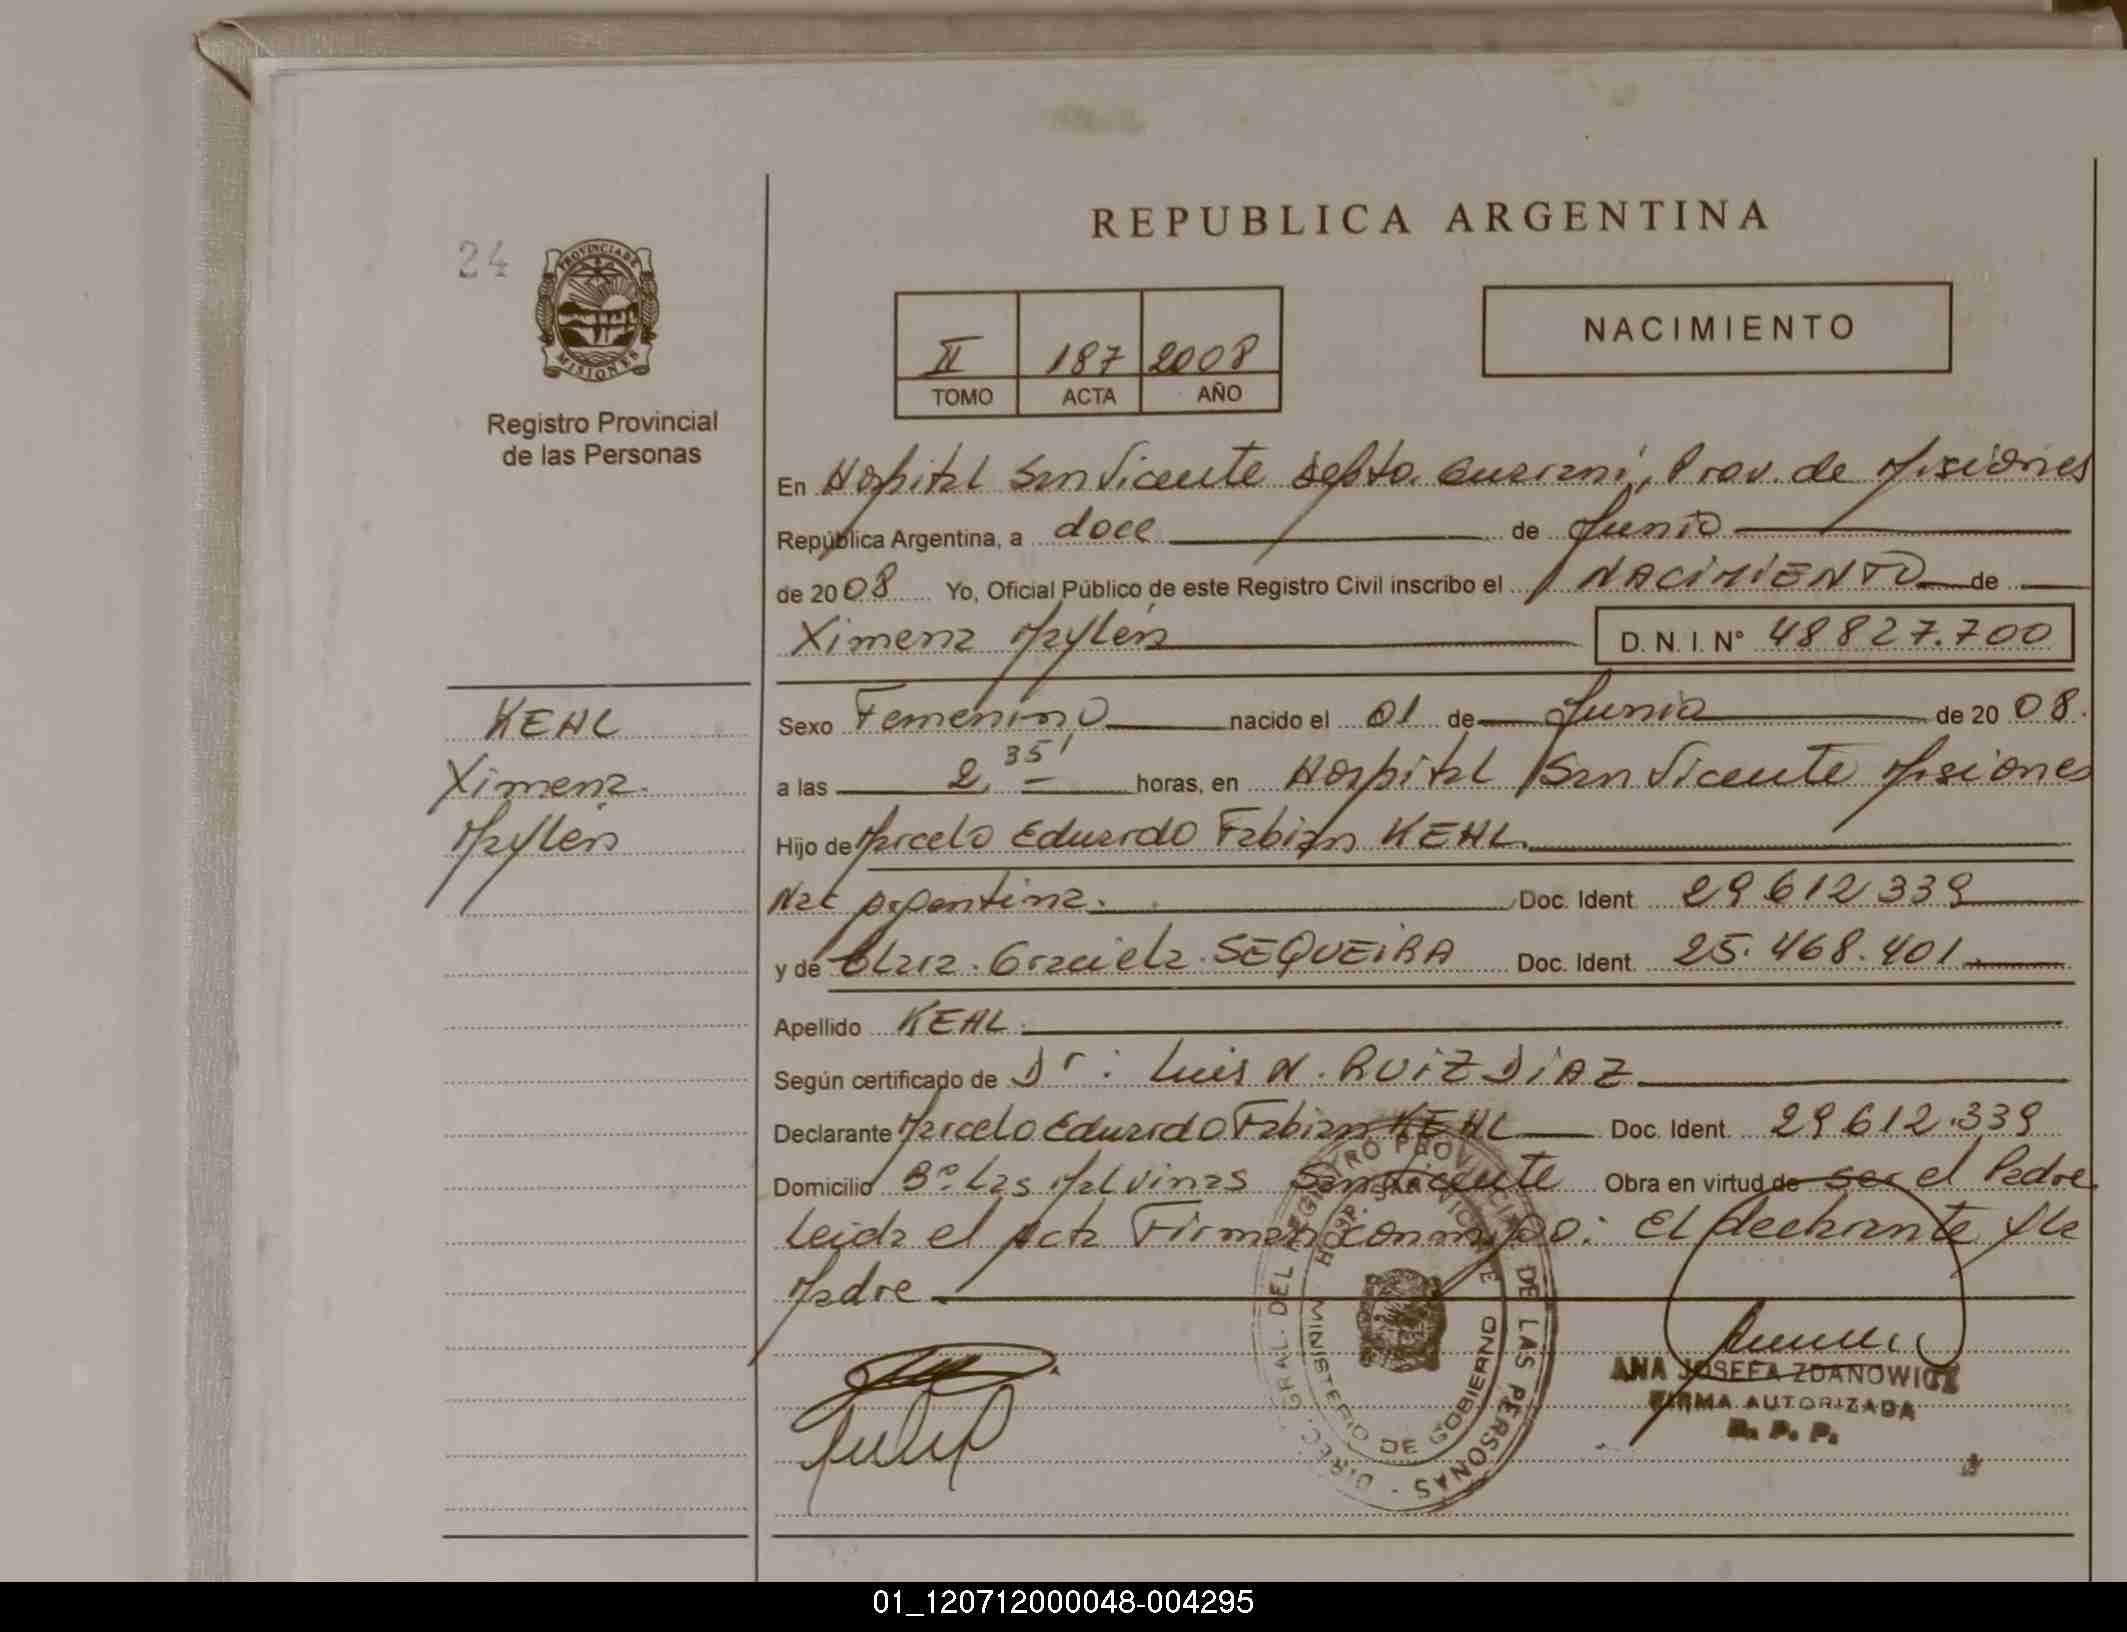 REPUBLICA ARGENTINA
24
PROVINCIA DE
MISIONES
Registro Provincial
de las Personas
II 187 2008
TOMO ACTA AÑO
NACIMIENTO
En Hospital San Vicente Depto. Guarani, Prov. de Misiones
República Argentina, a doce de Junio
de 2008 Yo, Oficial Público de este Registro Civil inscribo el NACIMIENTO de
Ximena Maylén D. N. I. N° 48827.700
KEHL
Ximena
Maylén
Sexo Femenino nacido el 01 de Junio de 20 08.
a las 2,35' horas, en Hospital San Vicente Misiones
Hijo de Marcelo Eduardo Fabian KEHL.
Nac Argentina. Doc. Ident. 29612339
y de Clara Graciela SEQUEIRA Doc. Ident. 25.468.401.
Apellido KEHL.
Según certificado de Dr: Luis N. RUIZ DIAZ
Declarante Marcelo Eduardo Fabian KEHL Doc. Ident. 29612.339
Domicilio Bº. Las Malvinas San Vicente Obra en virtud de ser el Padre
Leida el Acta Firman conmigo: El declarante y la
Madre.
DIREC. GRAL. DEL REGISTRO PROVINCIAL DE LAS PERSONAS
HOSP. SAN VICENTE
MINISTERIO DE GOBIERNO
ANA JOSEFA ZDANOWICZ
FIRMA AUTORIZADA
R. P. P.
01_120712000048-004295